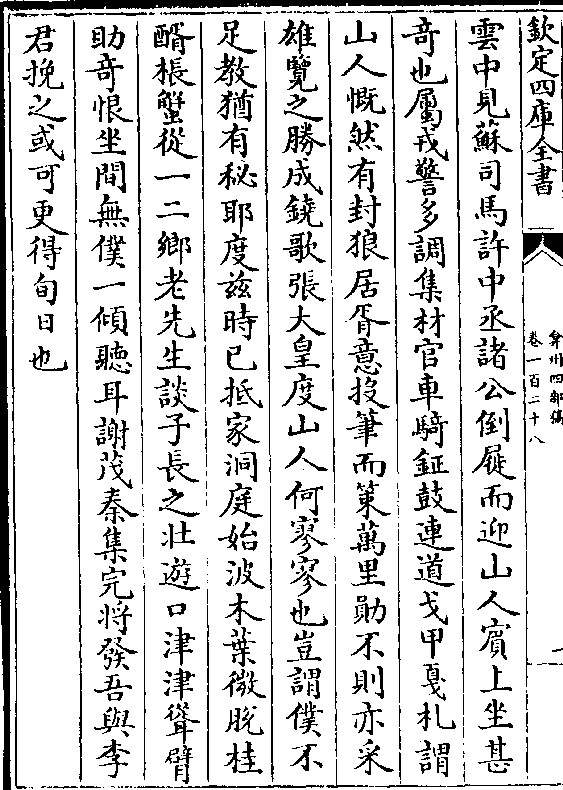 欽定四庫全書
弇州四部稿
卷一百二十八
雲中見蘇司馬許中丞諸公倒屣而迎山人賓上坐甚
竒也屬戎警多調集材官車騎鉦鼓連道戈甲戞札謂
山人慨然有封狼居胥意投筆而策萬里勛不則亦采
雄覽之勝成鐃歌張大皇度山人何寥寥也豈謂僕不
足教猶有秘耶度兹時已抵家洞庭始波木葉微脫桂
醑棖蟹從一二鄉老先生談子長之壯遊口津津聳臂
助竒恨坐間無僕一傾聽耳謝茂秦集完將發吾與李
君挽之或可更得旬日也